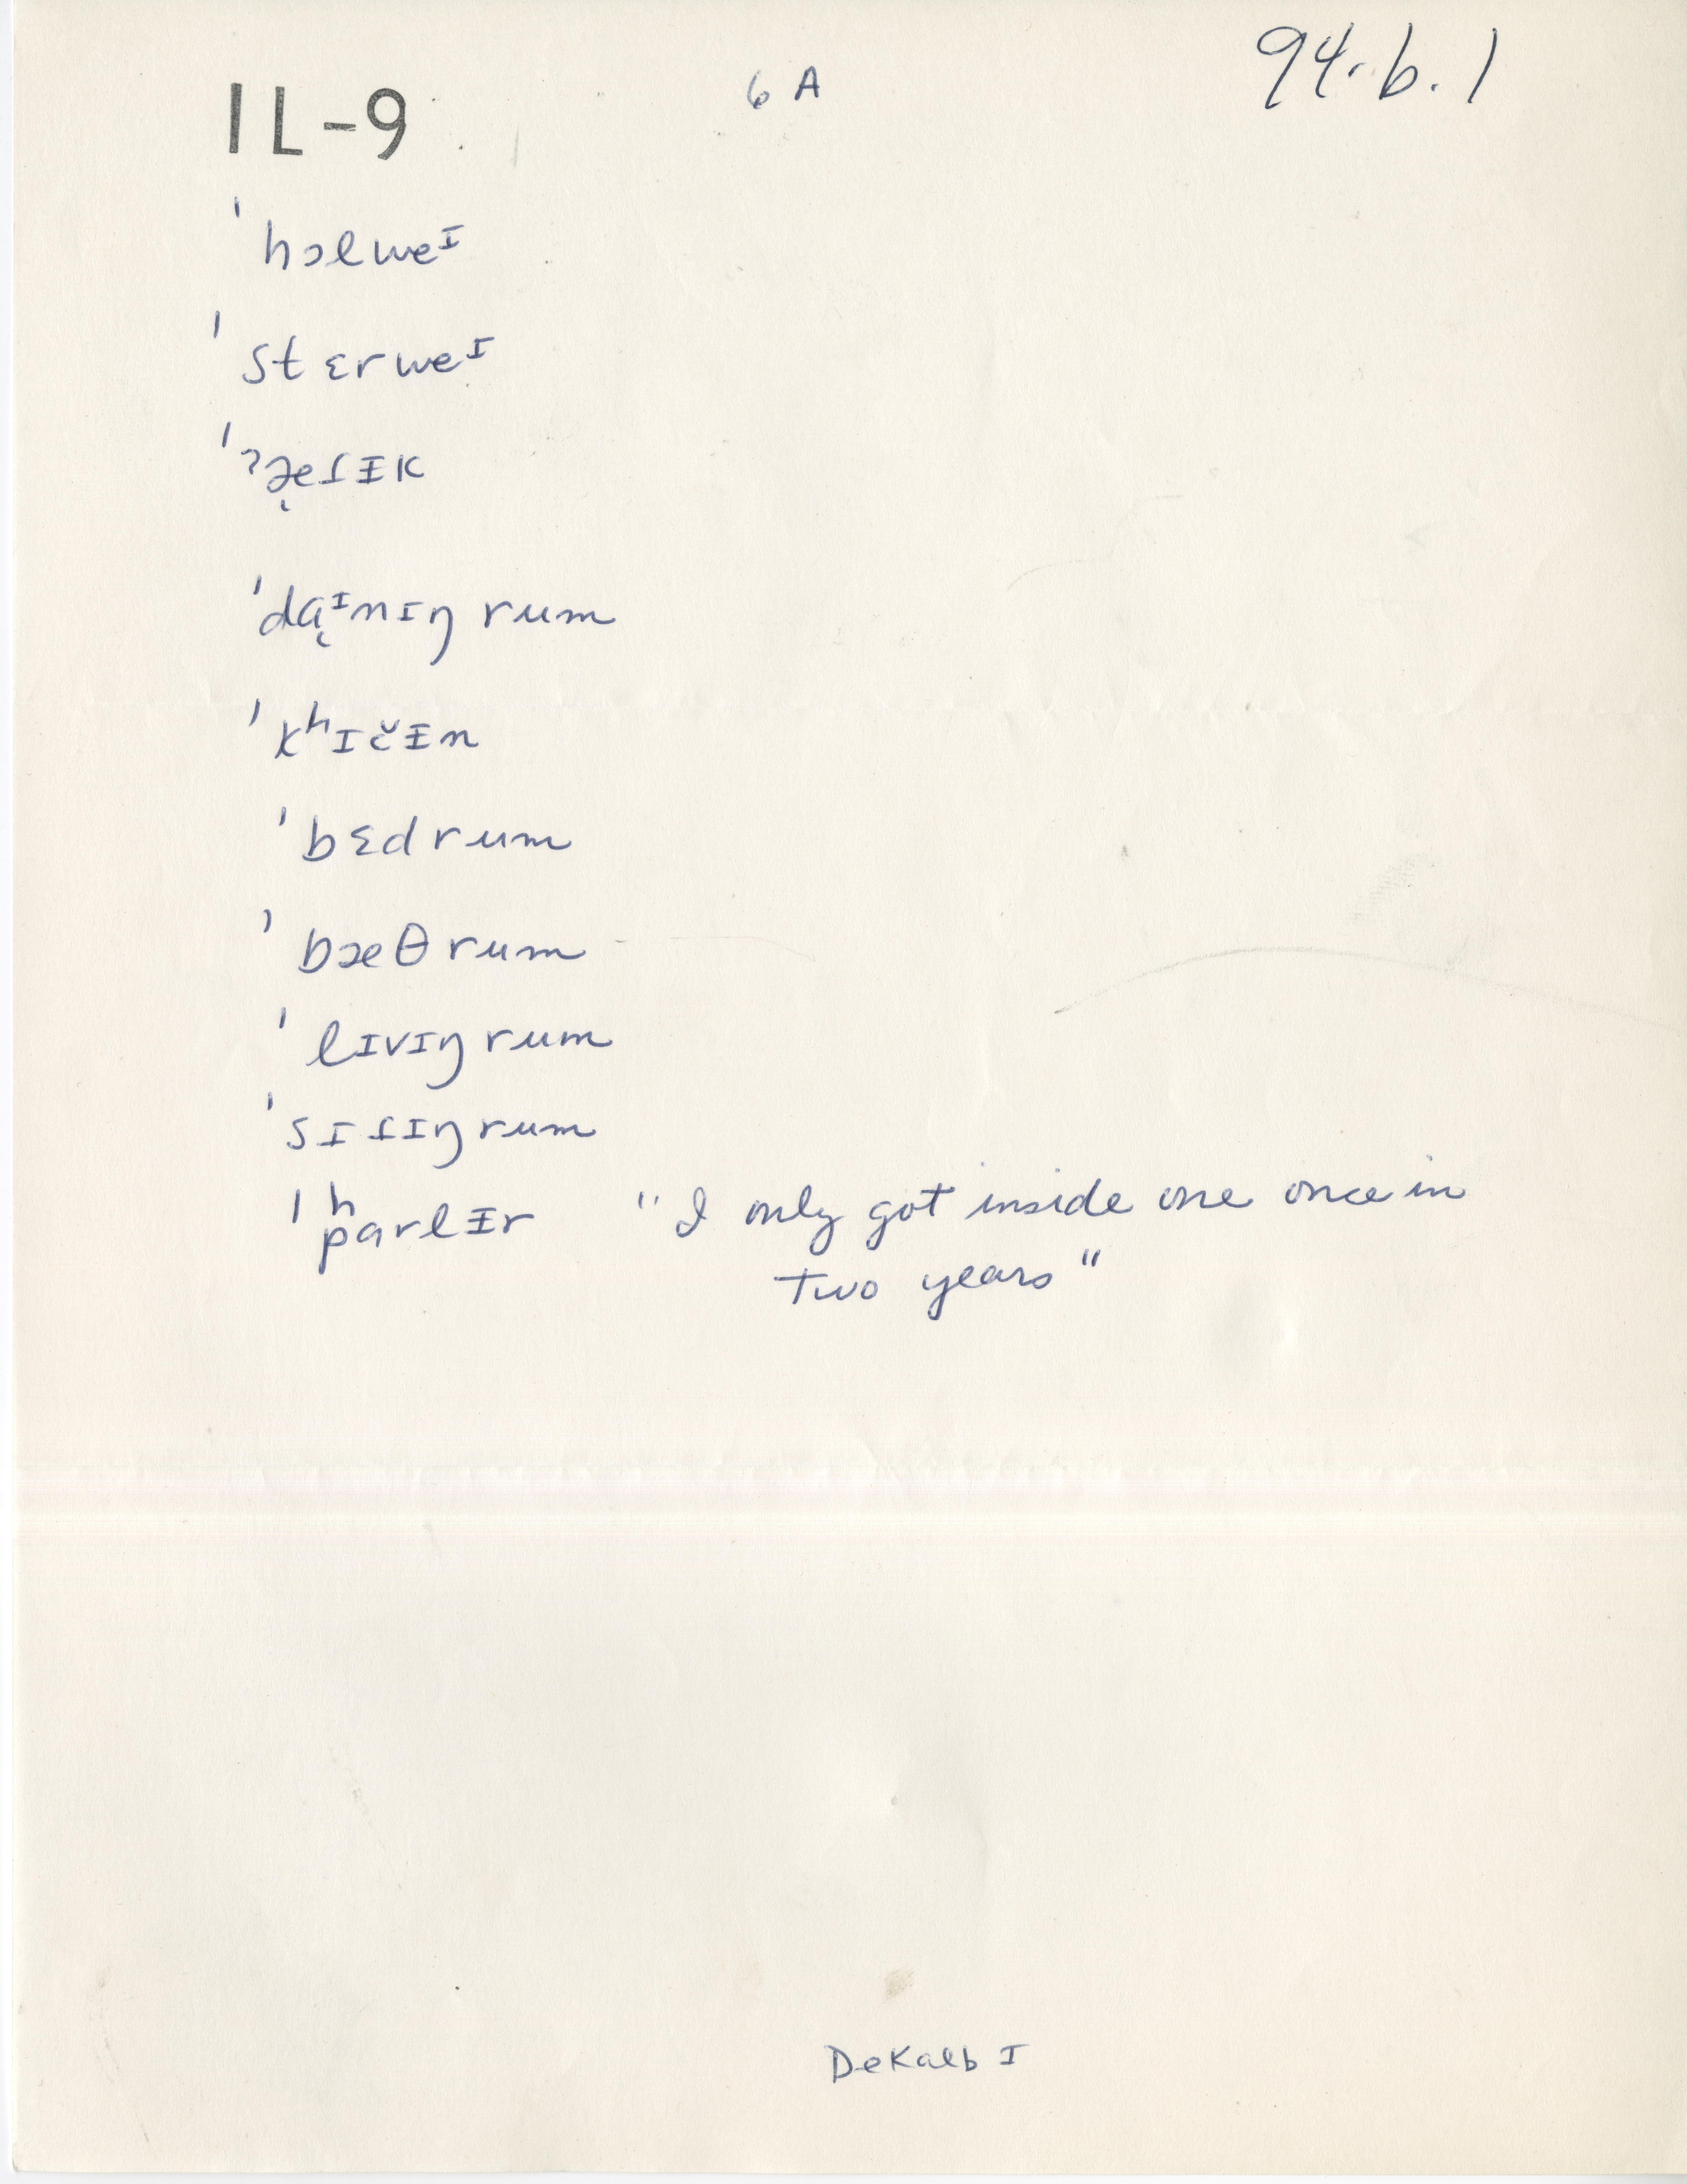 IL-9
6 A
94.6.1
ˈhɔlweᴵ
ˈstɛrweᴵ
ˈʔæ̨ɾᵻk
ˈdɑ̨ᴵnɪŋ rum
ˈkʰɪčᵻn
ˈbɛdrum
ˈbæθrum
ˈlɪvɪŋrum
ˈsɪɾɪŋrum
ˈpʰɑrlᵻr "I only got inside one once in
two years"
DeKalb I